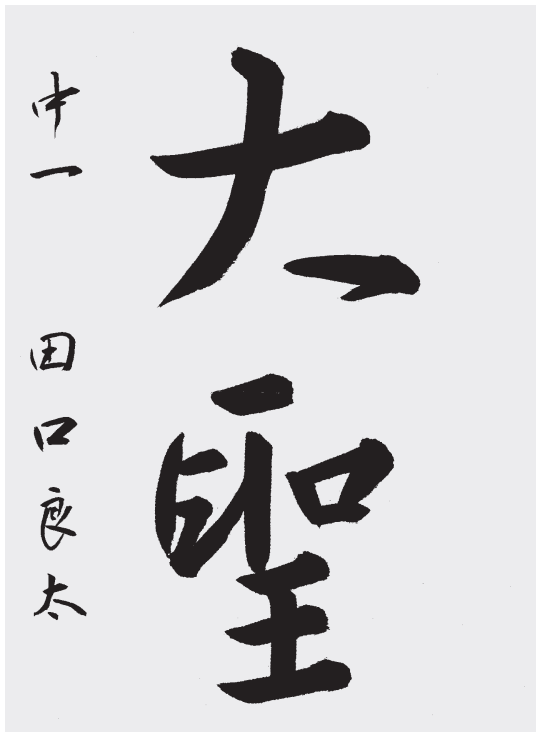 大聖
中一 田口良太